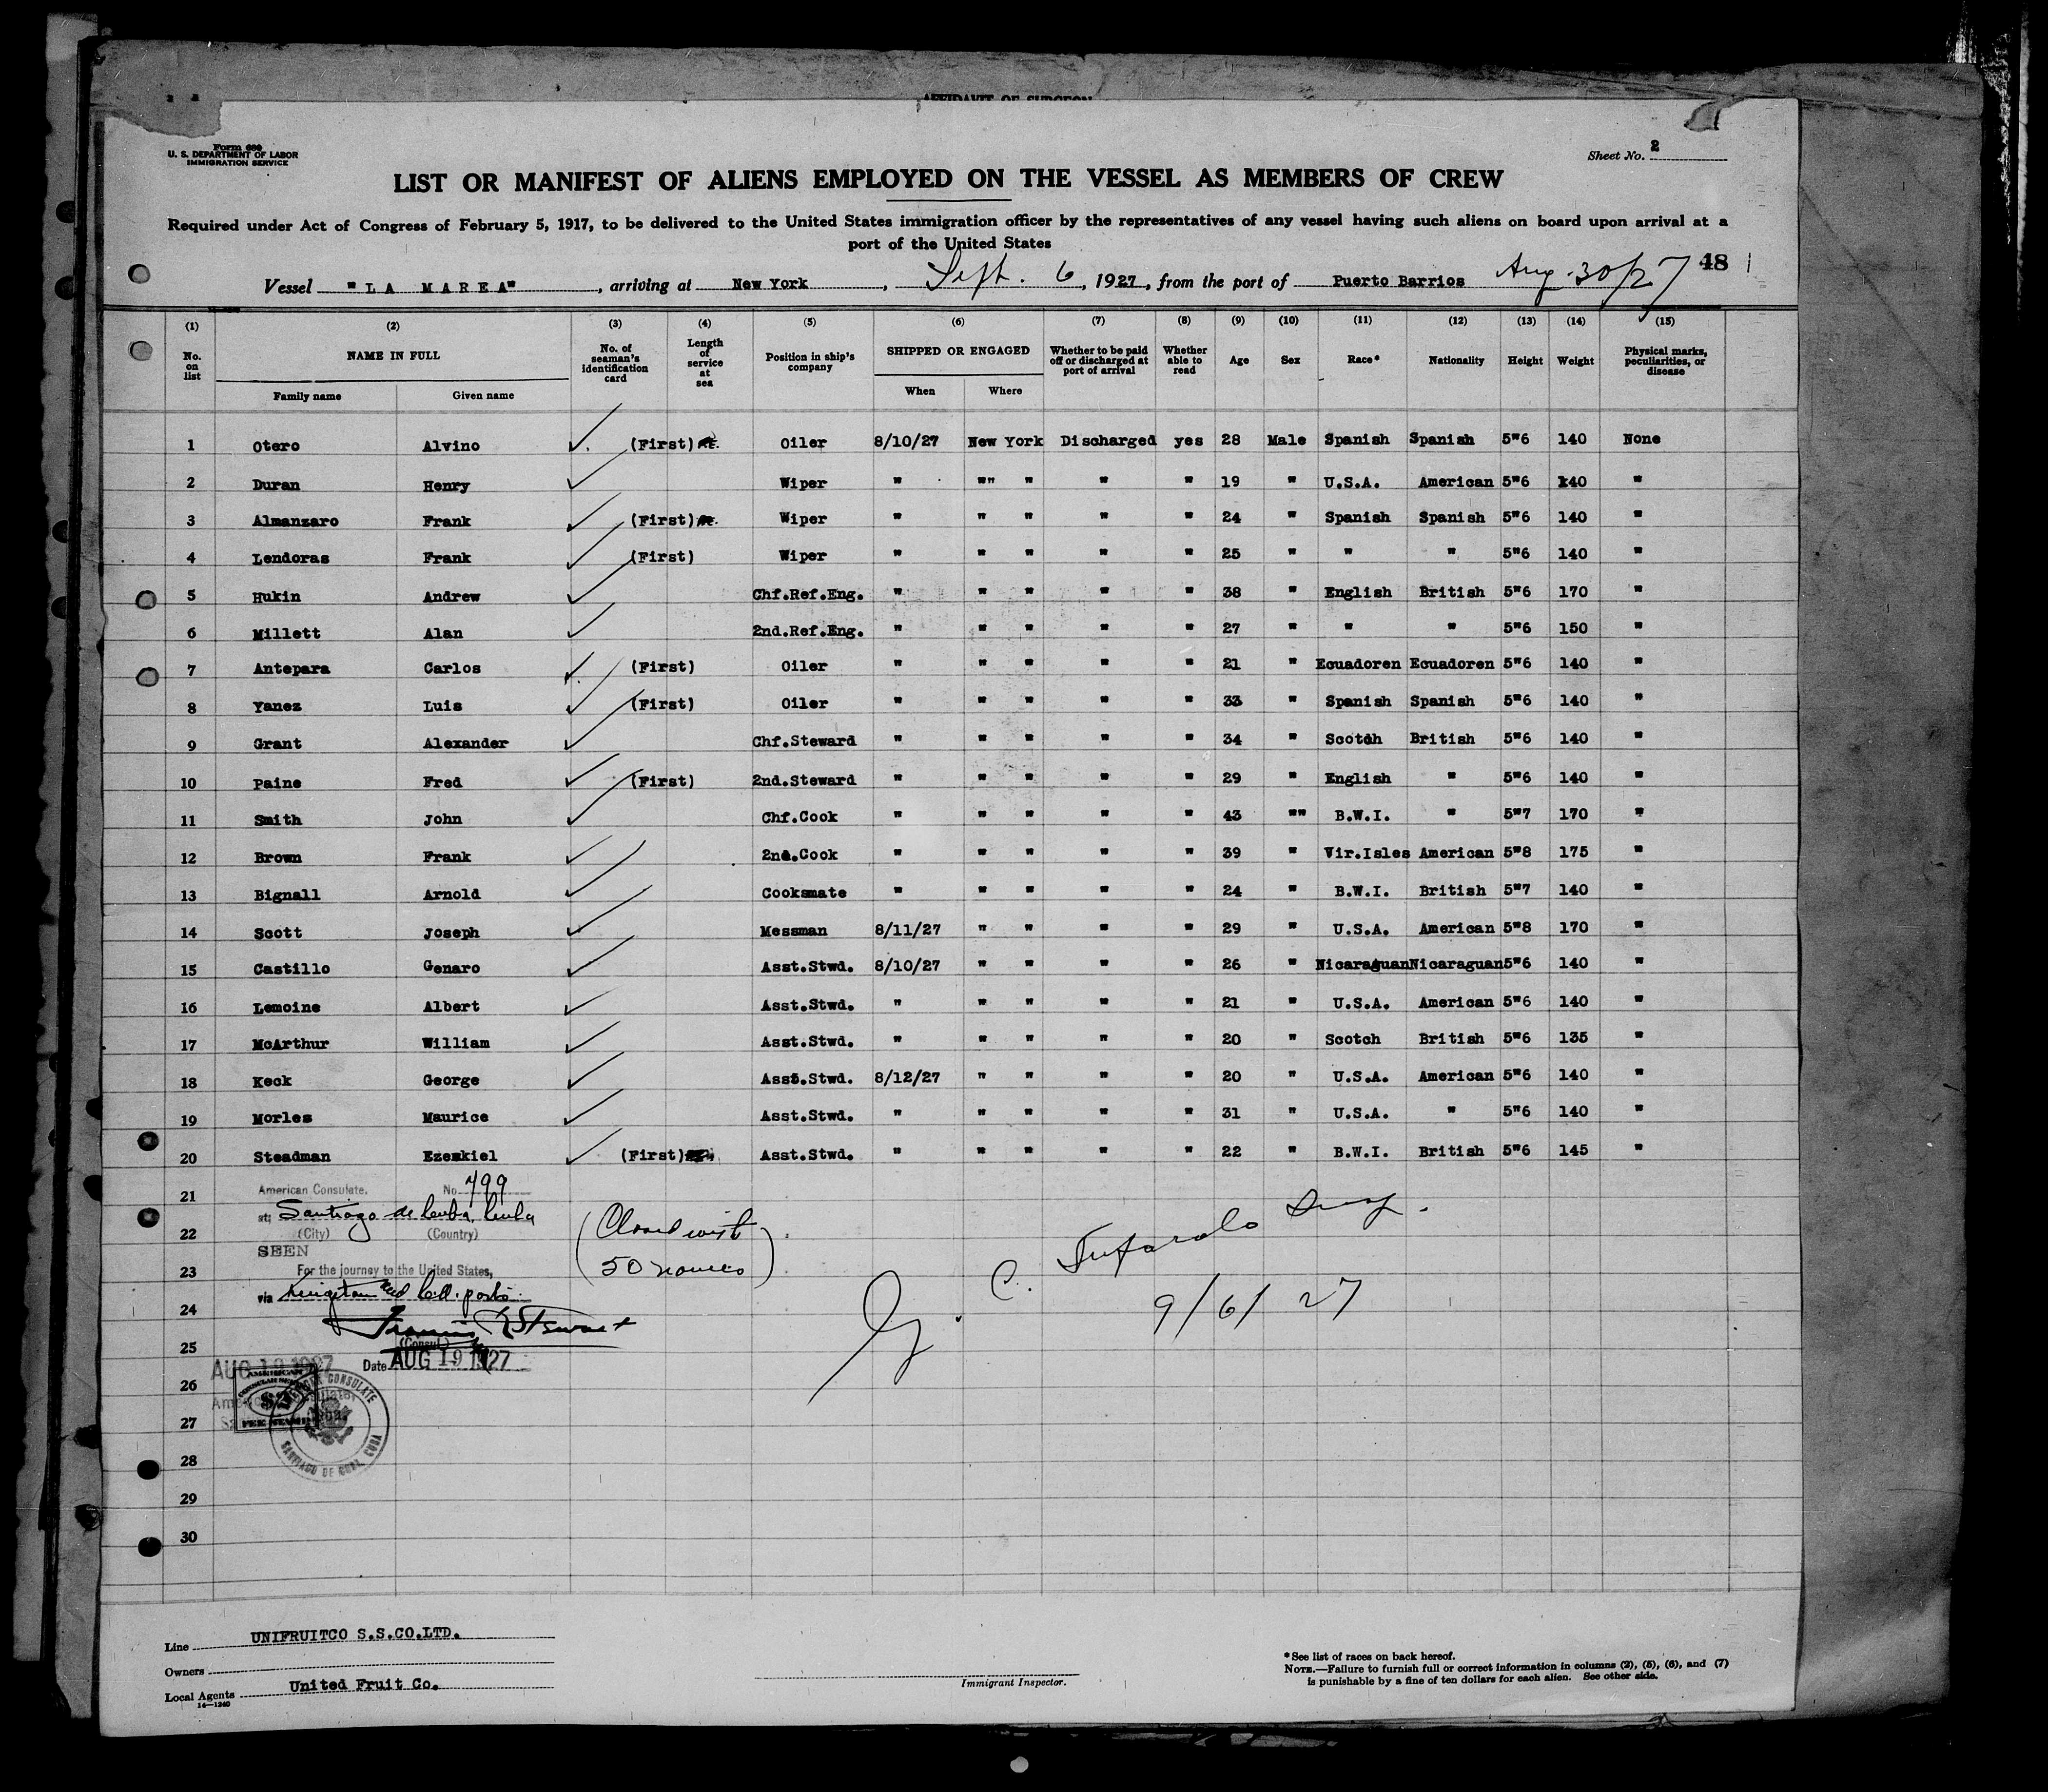 AFFIDAVIT OF SURGEON
Form 689
U. S. DEPARTMENT OF LABOR
IMMIGRATION SERVICE
Sheet No. 2
LIST OR MANIFEST OF ALIENS EMPLOYED ON THE VESSEL AS MEMBERS OF CREW
Required under Act of Congress of February 5, 1917, to be delivered to the United States immigration officer by the representatives of any vessel having such aliens on board upon arrival at a
port of the United States
48
Vessel "LA MAREA", arriving at New York, Sept. 6, 1927, from the port of Puerto Barrios Aug. 30/27
(1) (2) (3) (4) (5) (6) (7) (8) (9) (10) (11) (12) (13) (14) (15)
No. on list NAME IN FULL Family name Given name No. of seaman's identification card Length of service at sea Position in ship's company SHIPPED OR ENGAGED When Where Whether to be paid off or discharged at port of arrival Whether able to read Age Sex Race* Nationality Height Weight Physical marks, peculiarities, or disease
1 Otero Alvino (First) Oiler 8/10/27 New York Discharged yes 28 Male Spanish Spanish 5"6 140 None
2 Duran Henry Wiper " "" " " " 19 " U.S.A. American 5"6 140 "
3 Almanzaro Frank (First) Wiper " " " " " 24 " Spanish Spanish 5"6 140 "
4 Lendoras Frank (First) Wiper " " " " " 25 " " " 5"6 140 "
5 Hukin Andrew Chf.Ref.Eng. " " " " " 38 " English British 5"6 170 "
6 Millett Alan 2nd.Ref.Eng. " " " " " 27 " " " 5"6 150 "
7 Antepara Carlos (First) Oiler " " " " " 21 " Ecuadoren Ecuadoren 5"6 140 "
8 Yanez Luis (First) Oiler " " " " " 33 " Spanish Spanish 5"6 140 "
9 Grant Alexander Chf.Steward " " " " " 34 " Scotch British 5"6 140 "
10 Paine Fred (First) 2nd.Steward " " " " " 29 " English " 5"6 140 "
11 Smith John Chf.Cook " " " " " 43 "" B.W.I. " 5"7 170 "
12 Brown Frank 2nd.Cook " " " " " 39 " Vir.Isles American 5"8 175 "
13 Bignall Arnold Cooksmate " " " " " 24 " B.W.I. British 5"7 140 "
14 Scott Joseph Messman 8/11/27 " " " " 29 " U.S.A. American 5"8 170 "
15 Castillo Genaro Asst.Stwd. 8/10/27 " " " " 26 " Nicaraguan Nicaraguan 5"6 140 "
16 Lemoine Albert Asst.Stwd. " " " " " 21 " U.S.A. American 5"6 140 "
17 McArthur William Asst.Stwd. " " " " " 20 " Scotch British 5"6 135 "
18 Keck George Asst.Stwd. 8/12/27 " " " " 20 " U.S.A. American 5"6 140 "
19 Morles Maurice Asst.Stwd. " " " " " 31 " U.S.A. " 5"6 140 "
20 Steadman Ezekiel (First) Asst.Stwd. " " " " " 22 " B.W.I. British 5"6 145 "
21 American Consulate, No. 799
at: Santiago de Cuba, Cuba
22 (City) (Country)
SEEN
(Closed with
50 names)
23 For the journey to the United States,
via Kingston and C.A. ports
24
Francis R Stewart
(Consul)
25
Date AUG 19 1927
AUG 19 1927
9/6/27
26
27
28
29
30
AMERICAN CONSULATE
SANTIAGO DE CUBA, CUBA
$2
FEE STAMP
Line UNIFRUITCO S.S.CO.LTD.
Owners
Local Agents United Fruit Co.
14—1240
Immigrant Inspector.
*See list of races on back hereof.
NOTE.—Failure to furnish full or correct information in columns (2), (5), (6), and (7)
is punishable by a fine of ten dollars for each alien. See other side.